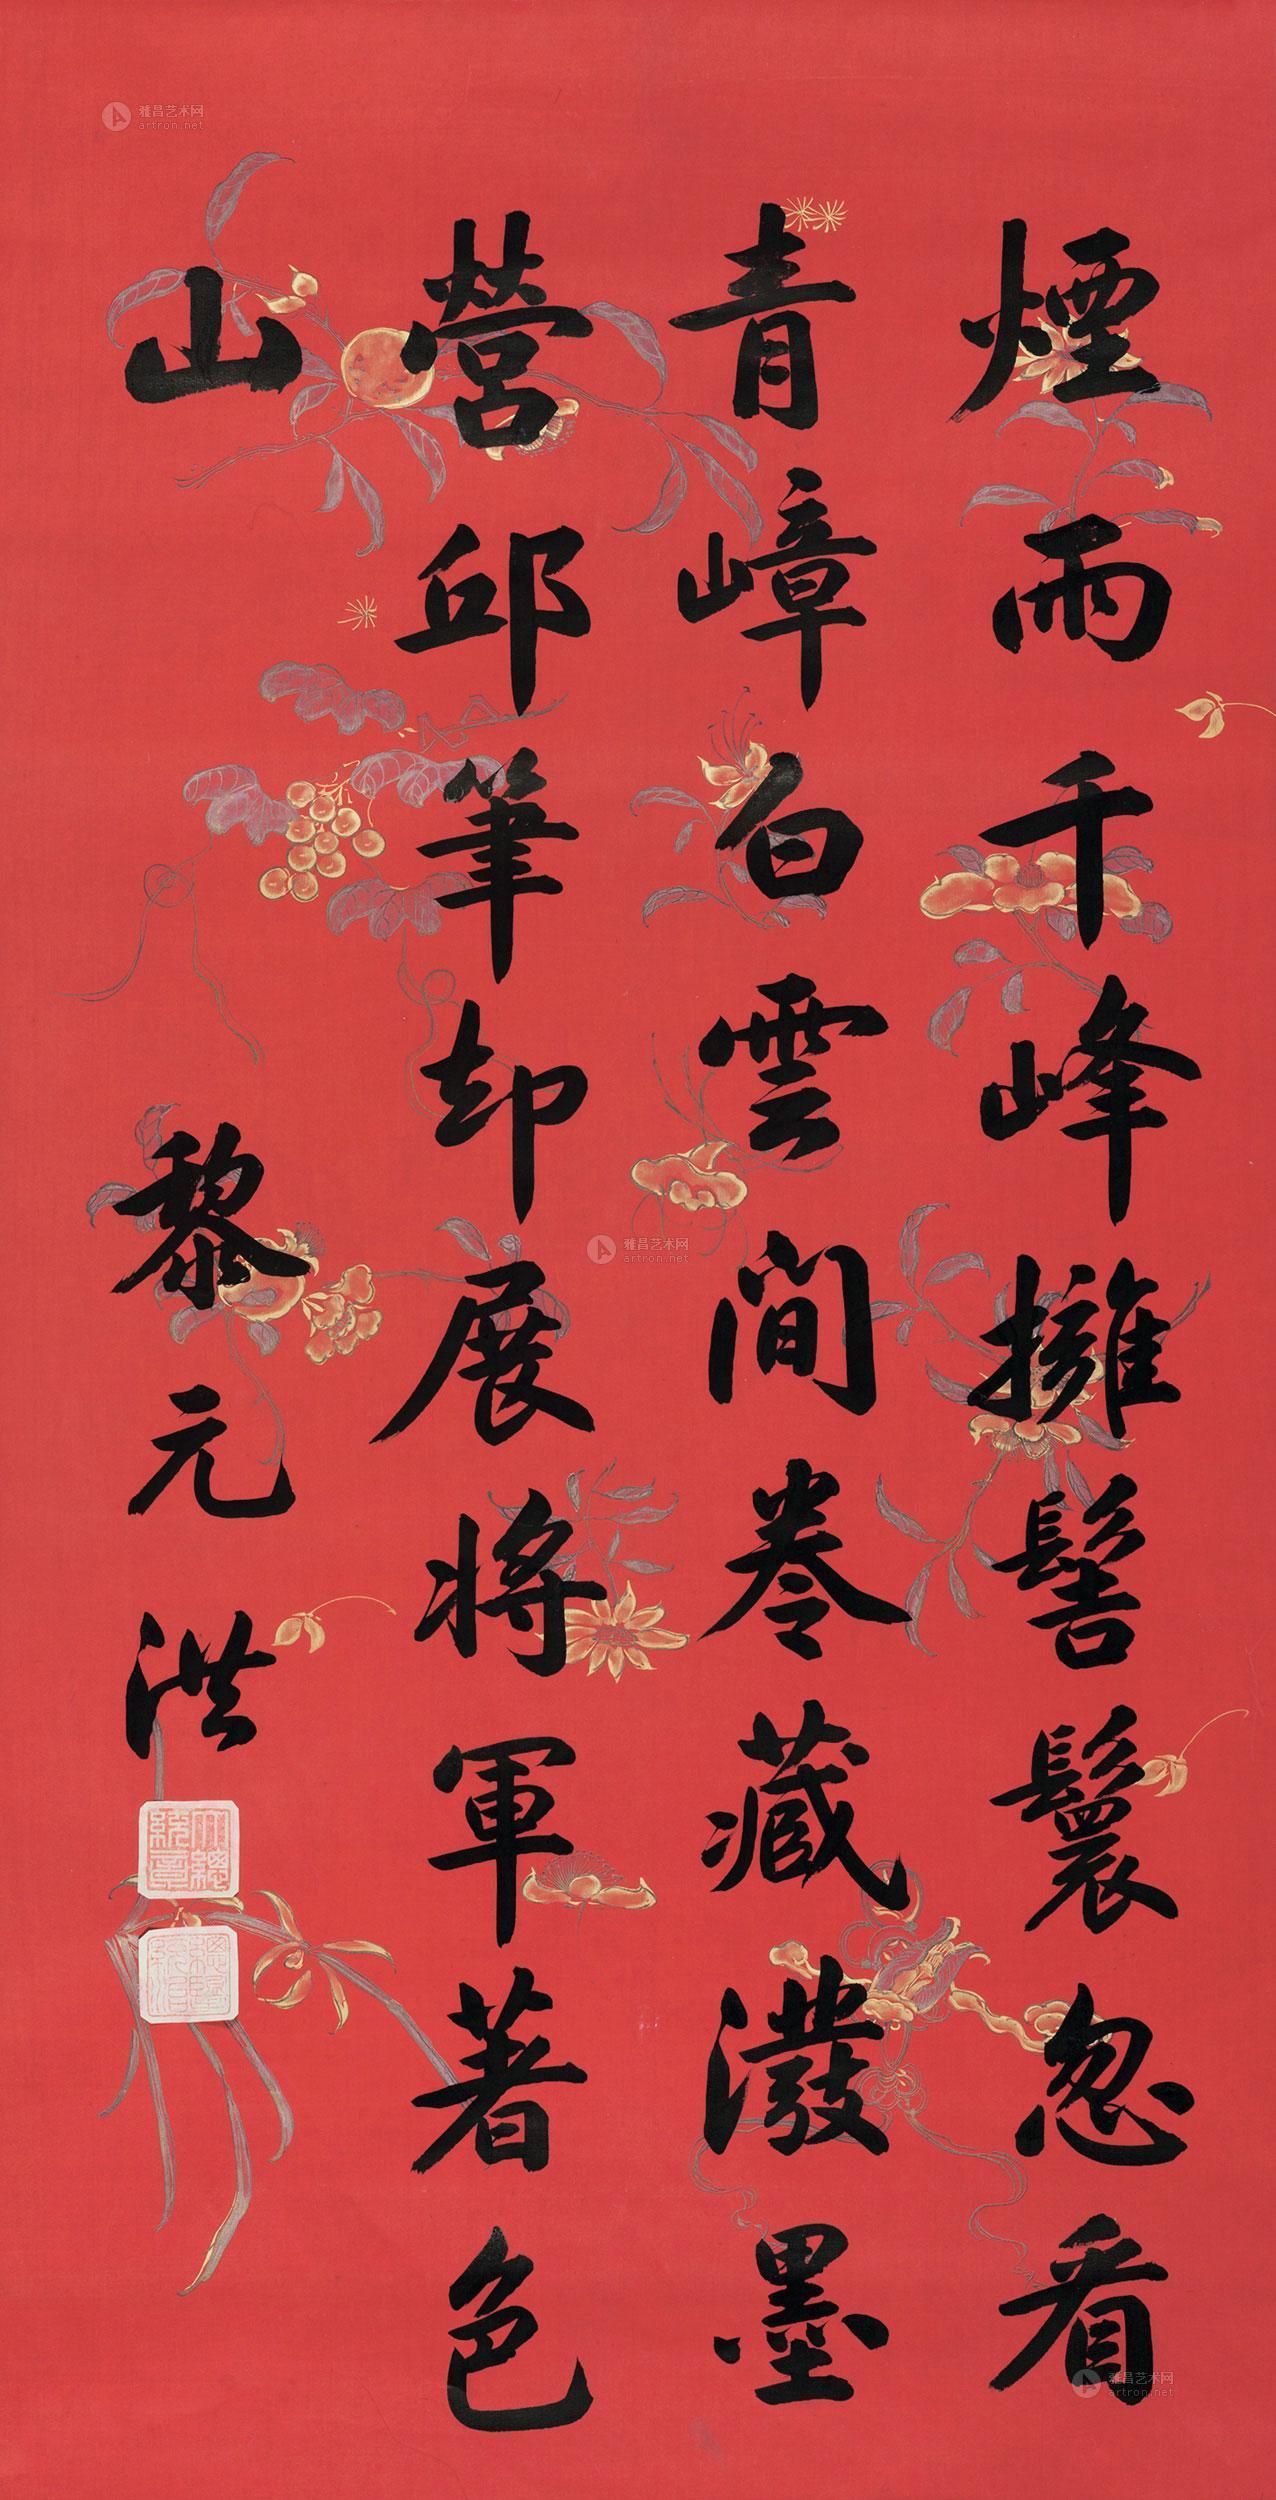 煙雨千峰擁髻鬟忽看
青嶂白雲間卷藏潑墨
營邱筆却展將軍著色
山
黎元洪
大總統章
雅昌艺术网
artron.net
雅昌艺术网
artron.net
雅昌艺术网
artron.net